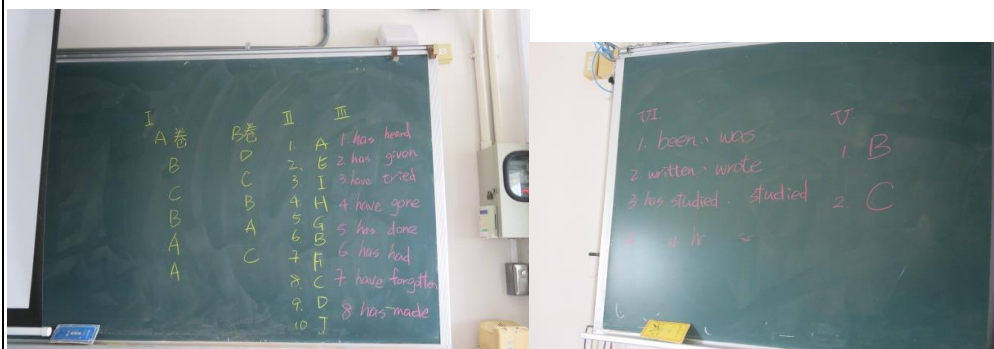 I
A卷
B
C
B
A
A
B卷
D
C
B
A
C
II
1. A
2. E
3. I
4. H
5. G
6. B
7. F
8. C
9. D
10 J
III
1. has heard
2 has given
3 have tried
4. have gone
5 has done
6 has had
7 have forgotten
8 has made
VI.
1. been, was
2 written, wrote
3 has studied, studied
V.
1. B
2. C